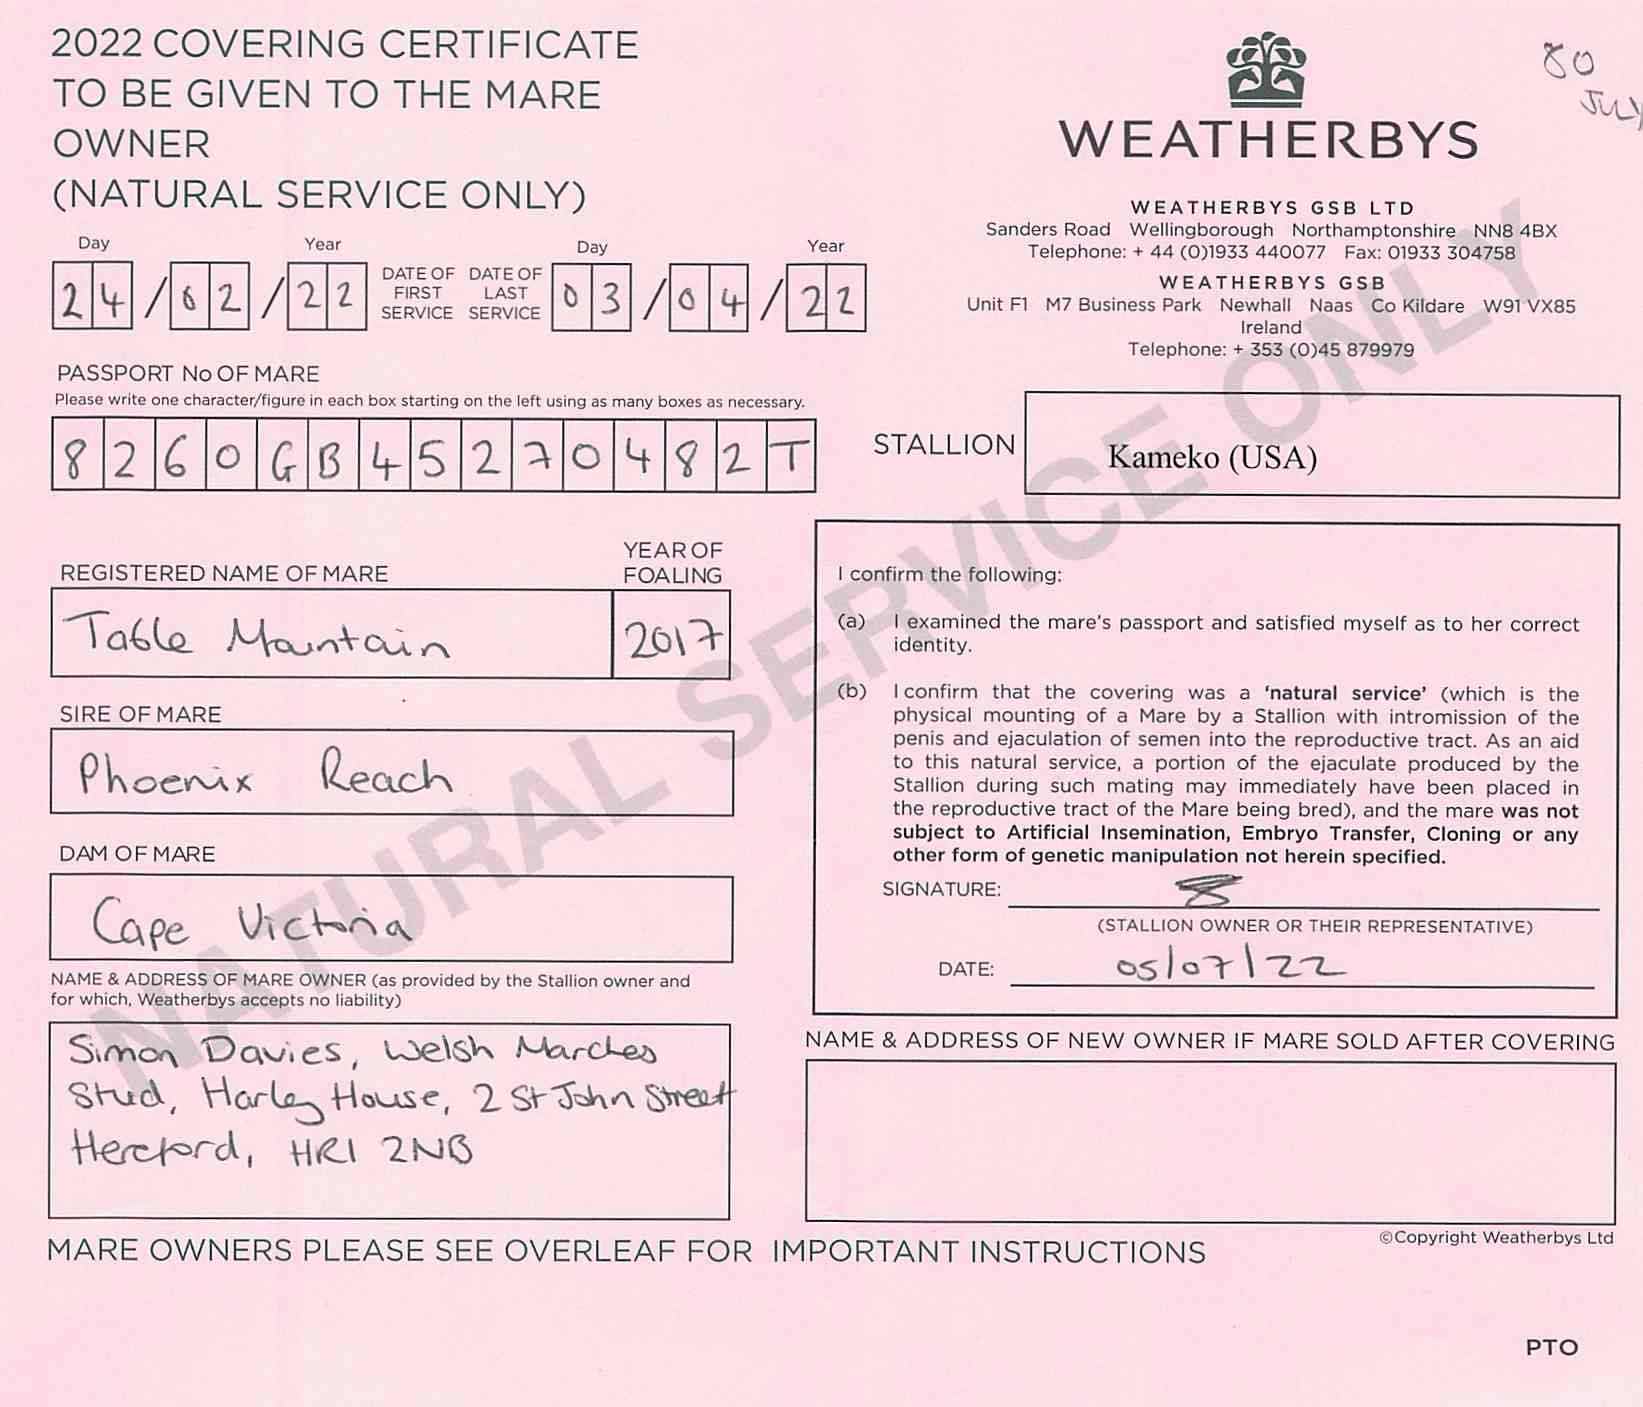 2022 COVERING CERTIFICATE
TO BE GIVEN TO THE MARE
OWNER
(NATURAL SERVICE ONLY)
80
JULY
WEATHERBYS
WEATHERBYS GSB LTD
Sanders Road Wellingborough Northamptonshire NN8 4BX
Telephone: + 44 (0)1933 440077 Fax: 01933 304758
WEATHERBYS GSB
Unit F1 M7 Business Park Newhall Naas Co Kildare W91 VX85
Ireland
Telephone: + 353 (0)45 879979
Day Year
24/02/22
DATE OF FIRST SERVICE
DATE OF LAST SERVICE
Day Year
03/04/22
PASSPORT No OF MARE
Please write one character/figure in each box starting on the left using as many boxes as necessary.
8260GB45270482T
STALLION
Kameko (USA)
REGISTERED NAME OF MARE
Table Mountain
YEAR OF
FOALING
2017
SIRE OF MARE
Phoenix Reach
DAM OF MARE
Cape Victoria
NAME & ADDRESS OF MARE OWNER (as provided by the Stallion owner and
for which, Weatherbys accepts no liability)
Simon Davies, Welsh Marches
Stud, Harley House, 2 St John Street
Hereford, HR1 2NB
I confirm the following:
(a) I examined the mare's passport and satisfied myself as to her correct
identity.
(b) I confirm that the covering was a 'natural service' (which is the
physical mounting of a Mare by a Stallion with intromission of the
penis and ejaculation of semen into the reproductive tract. As an aid
to this natural service, a portion of the ejaculate produced by the
Stallion during such mating may immediately have been placed in
the reproductive tract of the Mare being bred), and the mare was not
subject to Artificial Insemination, Embryo Transfer, Cloning or any
other form of genetic manipulation not herein specified.
SIGNATURE:
(STALLION OWNER OR THEIR REPRESENTATIVE)
DATE: 05/07/22
NAME & ADDRESS OF NEW OWNER IF MARE SOLD AFTER COVERING
©Copyright Weatherbys Ltd
MARE OWNERS PLEASE SEE OVERLEAF FOR IMPORTANT INSTRUCTIONS
PTO
NATURAL SERVICE ONLY